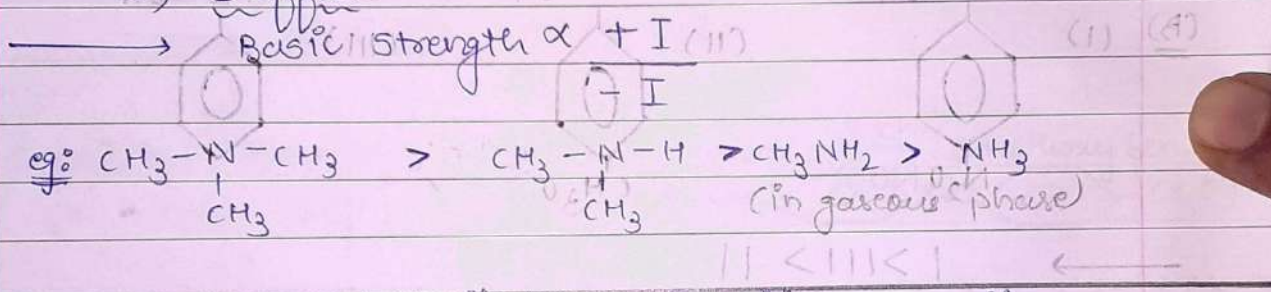 ⟶ Basic strength ∝ + I
- I
eg: CH3-N-CH3 > CH3-N-H > CH3NH2 > NH3
CH3 CH3 (in gaseous phase)